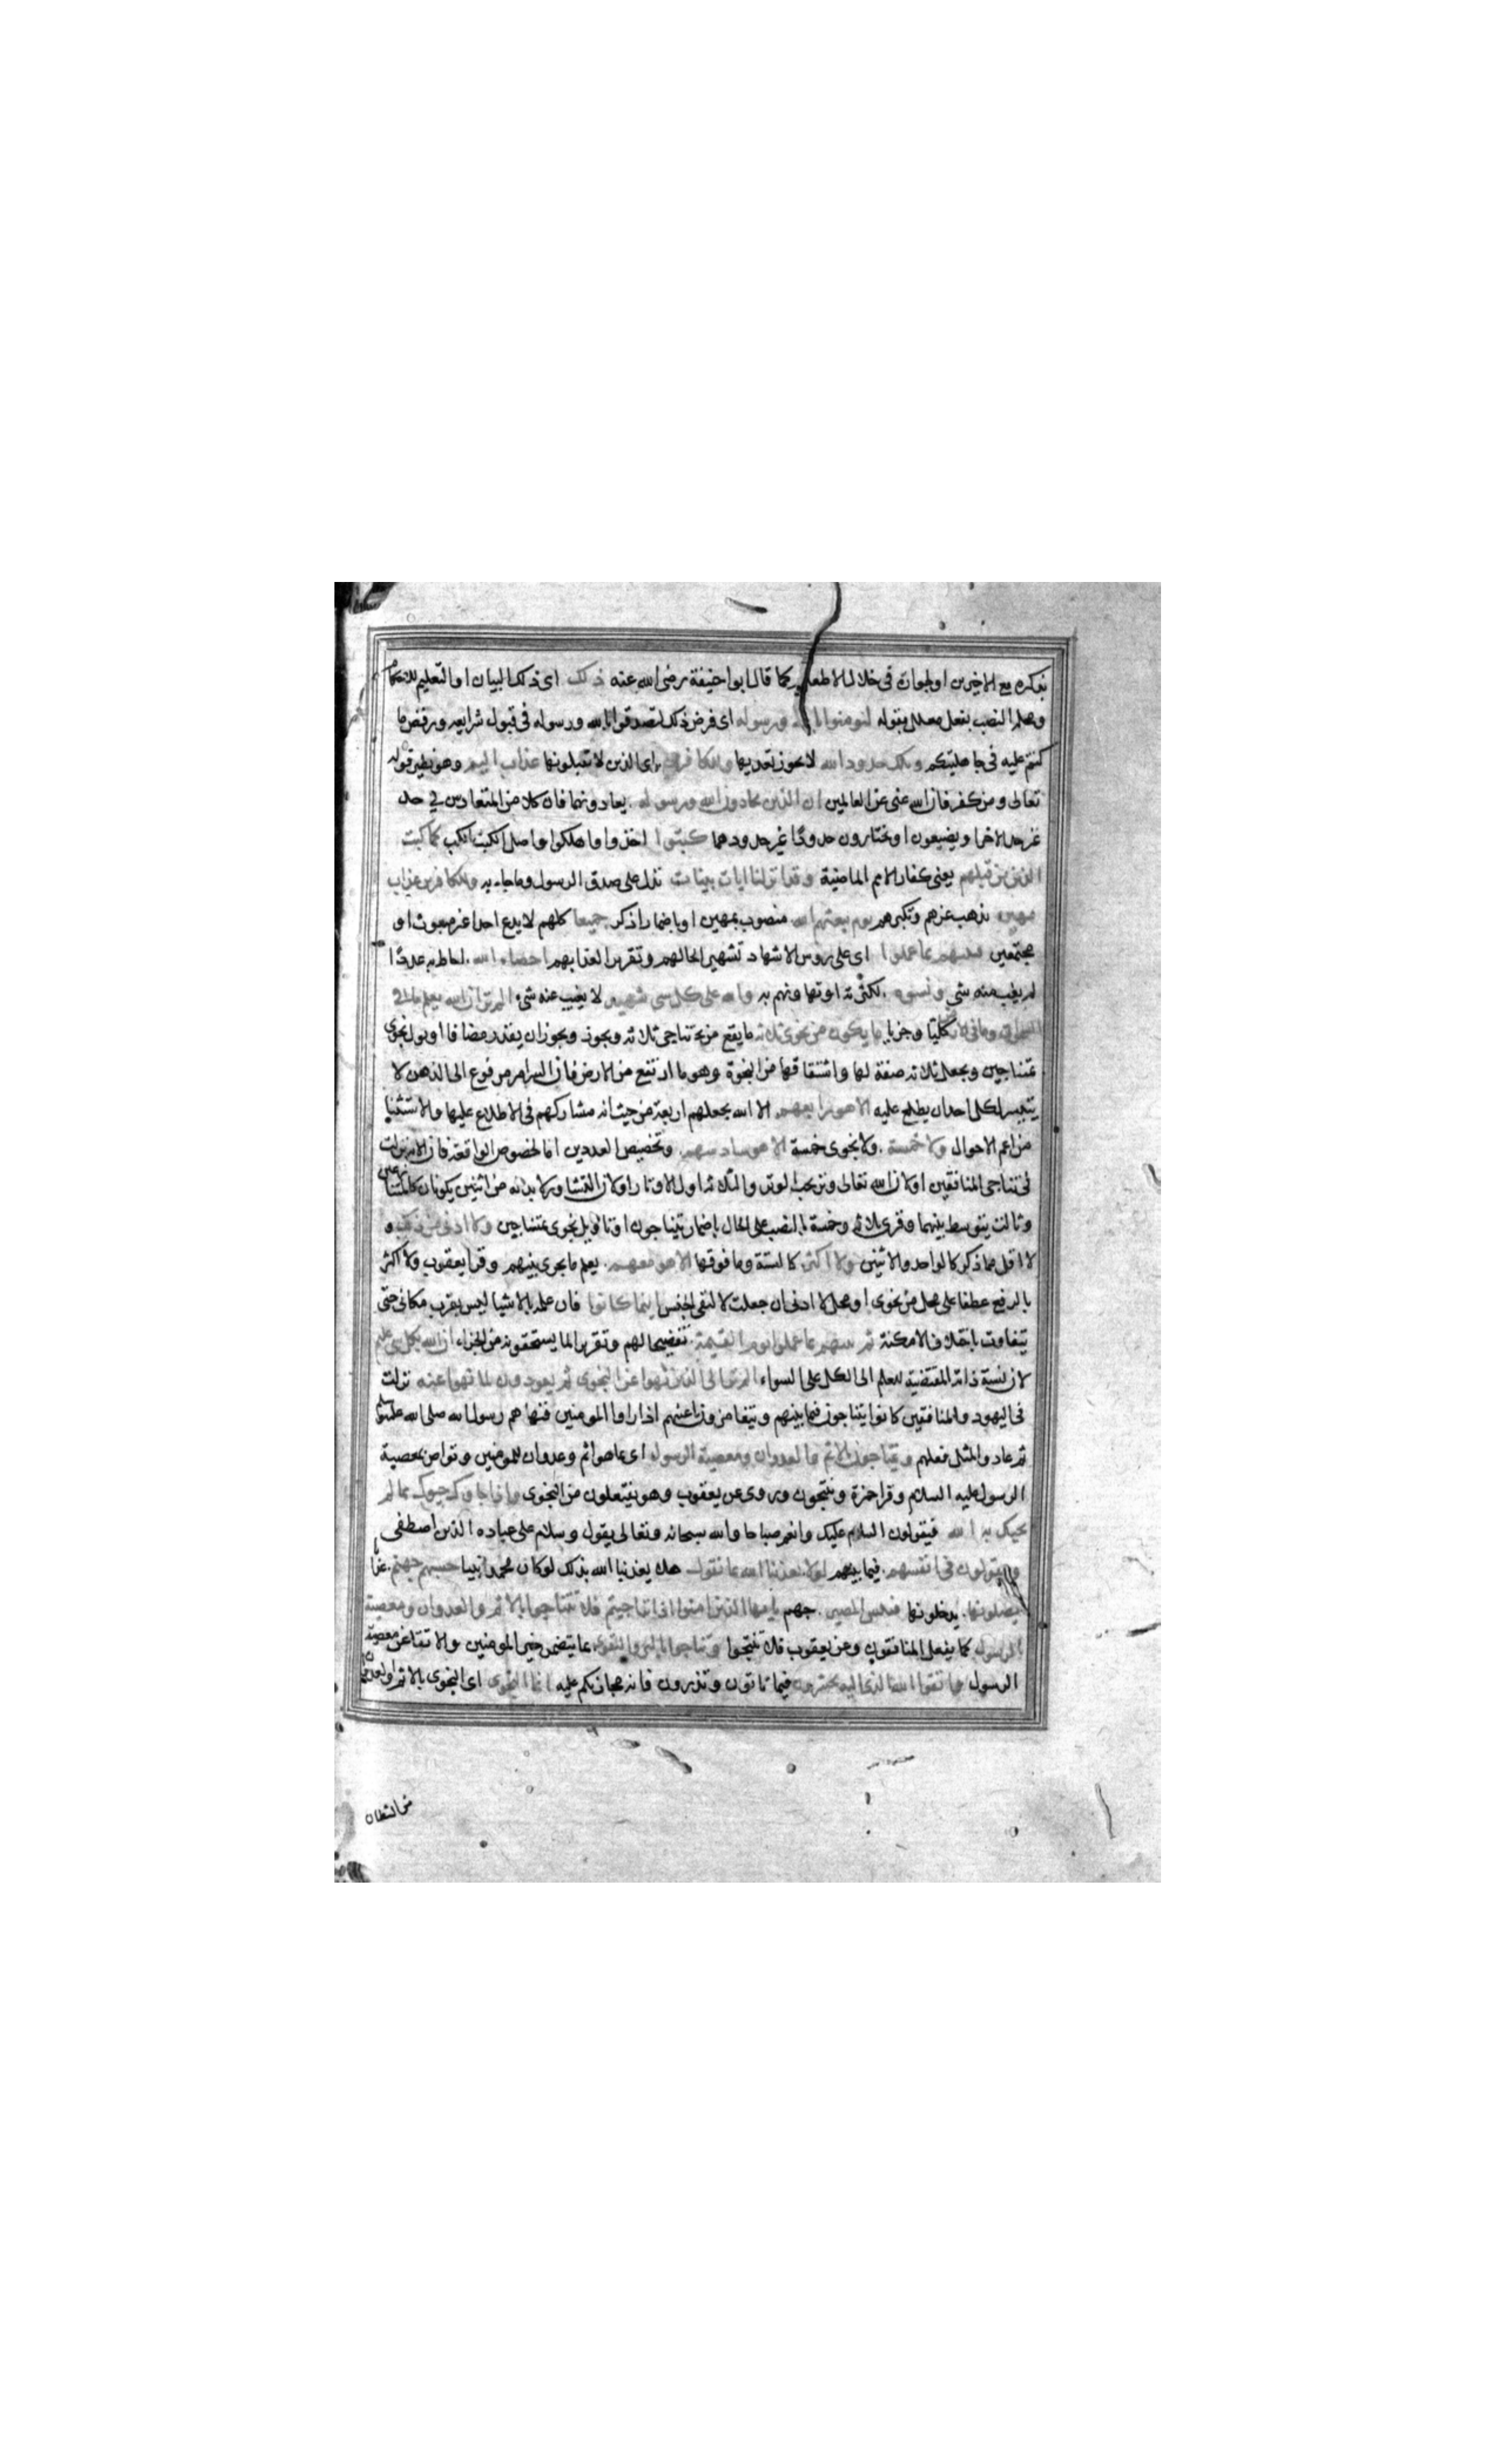 بذكره مع الاخرين او لجوازه في خلال الاطعام كما قال ابو حنيفة رضى الله عنه ذلك اى ذلك البيان او التعليم للاحكام
ومحله النصب بفعل معلل بقوله لتومنوا بالله ورسوله اى فرض ذلك لتصدقوا بالله ورسوله فى قبول شرايعه ورفض ما
كنتم عليه فى جاهليتكم وتلك حدود الله لا يجوز تعديها وللكافرين اى الذين لا يقبلونها عذاب اليم وهو نظير قوله
تعالى ومن كفر فان الله غنى عن العالمين ان الذين يحادون الله ورسوله يعادونهما فان كلا من المتعادين في حد
غير حد الاخر او يضيعون او يختارون حدودا غير حدودهما كبتوا اخذوا او اهلكوا واصل الكبت الكب كما كبت
الذين من قبلهم يعنى كفار الامم الماضية وقد انزلنا ايات بينات تدل على صدق الرسول وما جاء به وللكافرين عذاب
مهين يذهب عزهم وتكبرهم يوم يبعثهم الله منصوب بمهين او باضمار اذكر جميعا كلهم لا يدع احدا غير مبعوث او
مجتمعين فينبئهم بما عملوا اى على روس الاشهاد تشهيرا لحالهم وتقريرا لعذابهم احصاه الله احاط به عددا
لم يغب منه شي ونسوه لكثرته او تهاونهم به والله على كل شى شهيد لا يغيب عنه شىء الم تر ان الله يعلم ما في
السموات وما فى الارض كليا وجزيا ما يكون من نجوى ثلاثه ما يقع من تناجى ثلاثه ويجوز ويجوز ان يقدر مضافا او يول نجوى
بمتناجين ويجعل ثلاثه صفة لها واشتقاقها من النجوة وهو ما ارتفع من الارض فان السر امر مرفوع الى الذهن لا
يتيسر لكل احد ان يطلع عليه الا هو رابعهم الا الله يجعلهم اربعة من حيث انه مشاركهم فى الاطلاع عليها والاستثنا
من اعم الاحوال ولا خمسة ولا نجوى خمسة الا هو سادسهم وتخصيص العددين اما لخصوص الواقعة فان الاية نزلت
فى تناجى المنافقين او لان الله تعالى وتر يحب الوتر والثلاثه اول الاوتار او لان التشاور لا بد له من اثنين يكونان كالمتنازعين
وثالث يتوسط بينهما وقرى ثلاثه وخمسة بالنصب على الحال باضمار يتناجون او تاويل نجوى بمتناجين ولا ادنى من ذلك و
لا اقل مما ذكر كالواحد والاثنين ولا اكثر كالستة وما فوقها الا هو معهم يعلم ما يجرى بينهم وقرا يعقوب ولا اكثر
بالرفع عطفا على محل من نجوى او محل لا ادنى ان جعلت لا لنفى الجنس اينما كانوا فان علمه بالاشيا ليس بقرب مكانى حتى
يتفاوت باختلاف الامكنة ثم ينبئهم بما عملوا يوم القيمة تفضيحا لهم وتقريرا لما يستحقونه من الجزاء ان الله بكل شى عليم
لان نسبة ذاته المقتضية للعلم الى الكل على السواء الم تر الى الذين نهوا عن النجوى ثم يعودون لما نهوا عنه نزلت
فى اليهود والمنافقين كانوا يتناجون فيما بينهم ويتغامزون باعينهم اذا راوا المومنين فنهاهم رسول الله صلى الله عليه وسلم
ثم عادوا لمثل فعلهم ويتناجون بالاثم والعدوان ومعصية الرسول اى بما هو اثم وعدوان للمومنين وتواص بمعصية
الرسول عليه السلام وقرا حمزة وينتجون وروى عن يعقوب وهو يفتعلون من النجوى واذا جاوك حيوك بما لم
يحيك به الله فيقولون السلام عليك وانعم صباحا والله سبحانه وتعالى يقول وسلام على عباده الذين اصطفى
ويقولون فى انفسهم فيما بينهم لولا يعذبنا الله بما نقول هلا يعذبنا الله بذلك لو كان محمد نبيا حسبهم جهنم عذابا
يصلونها يدخلونها فبئس المصير جهنم يا ايها الذين امنوا اذا تناجيتم فلا تتناجوا بالاثم والعدوان ومعصية
الرسول كما يفعل المنافقون وعن يعقوب فلا تنتجوا وتناجوا بالبر والتقوى بما يتضمن خير المومنين والاتقا عن معصية
الرسول واتقوا الله الذى اليه تحشرون فيما تاتون وتذرون فانه مجازيكم عليه انما النجوى اى النجوى بالاثم والعدوان
من الشيطان